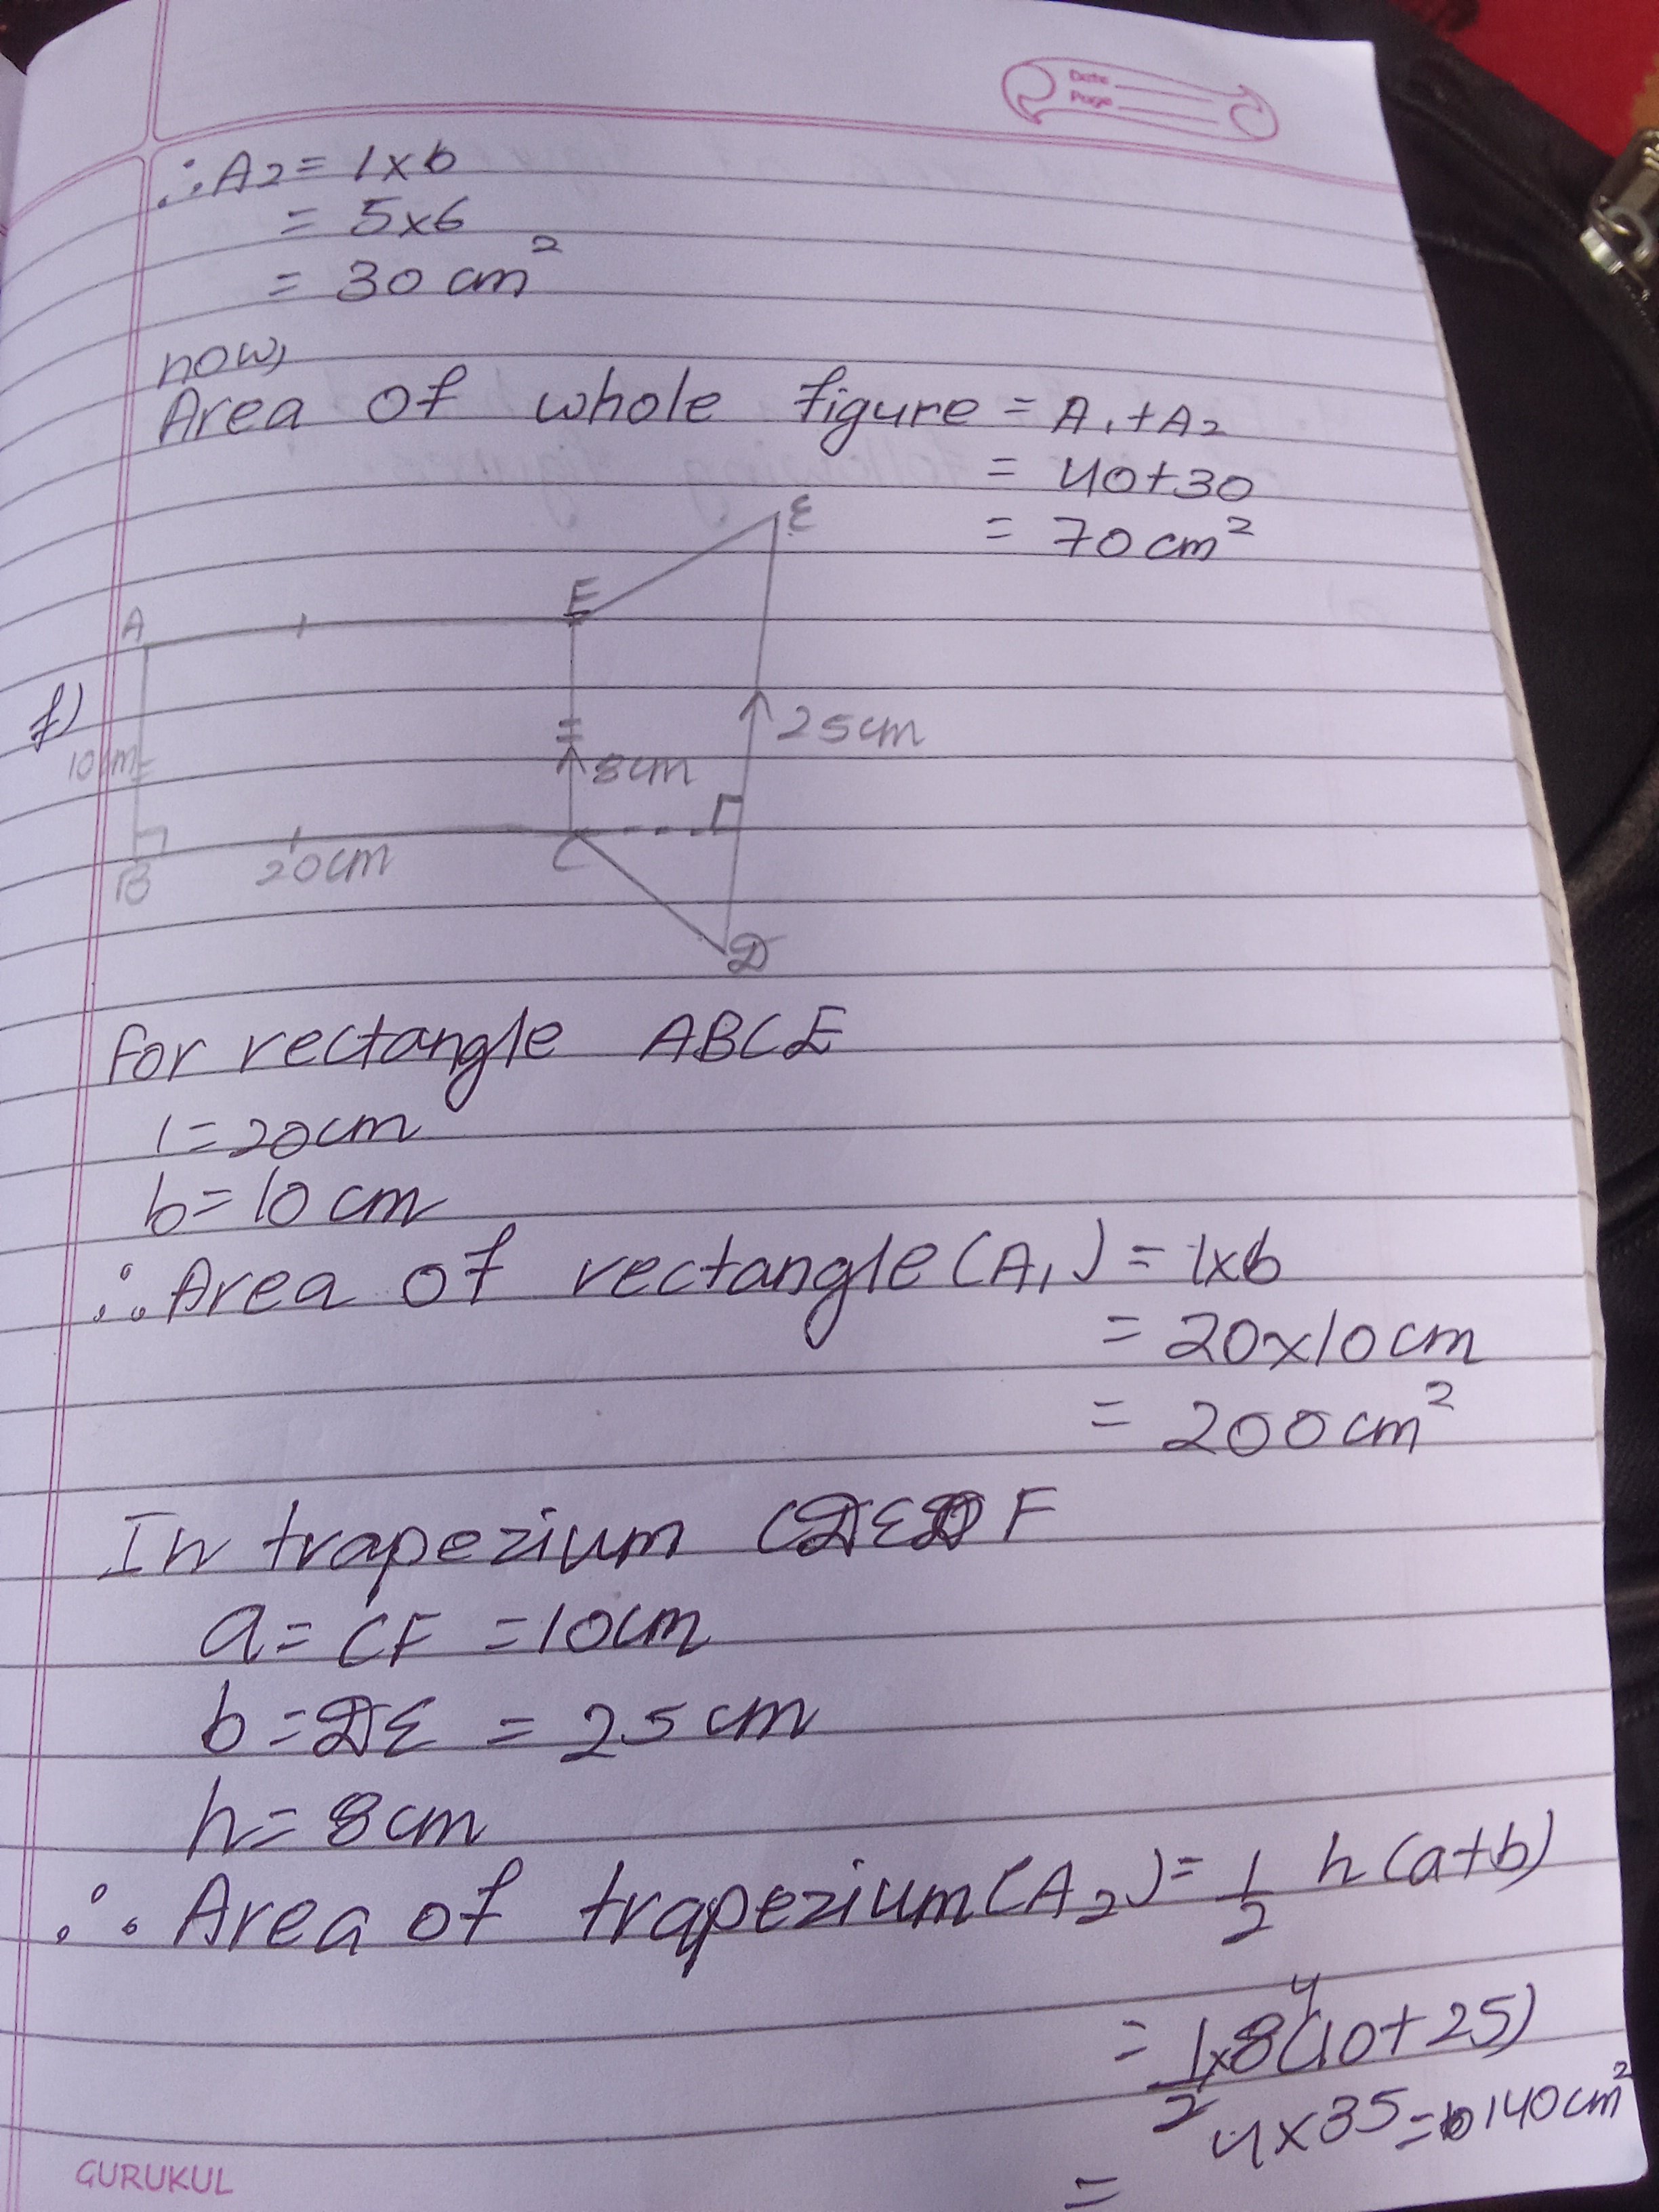 Date
Page
∴A2 = l×b
= 5×6
= 30 cm²
now,
Area of whole figure = A1+A2
= 40+30
= 70 cm²
E
F
A
f)
25cm
10cm
8cm
C
20cm
B
D
for rectangle ABCE
l=20cm
b=10 cm
∴Area of rectangle(A1) = l×b
= 20×10cm
= 200cm²
In trapezium CDEF
a= CF =10cm
b=DE = 25cm
h= 8cm
∴ Area of trapezium(A2)= 1/2 h(a+b)
4
= 1/2×8(10+25)
= 4×35= 140cm²
GURUKUL